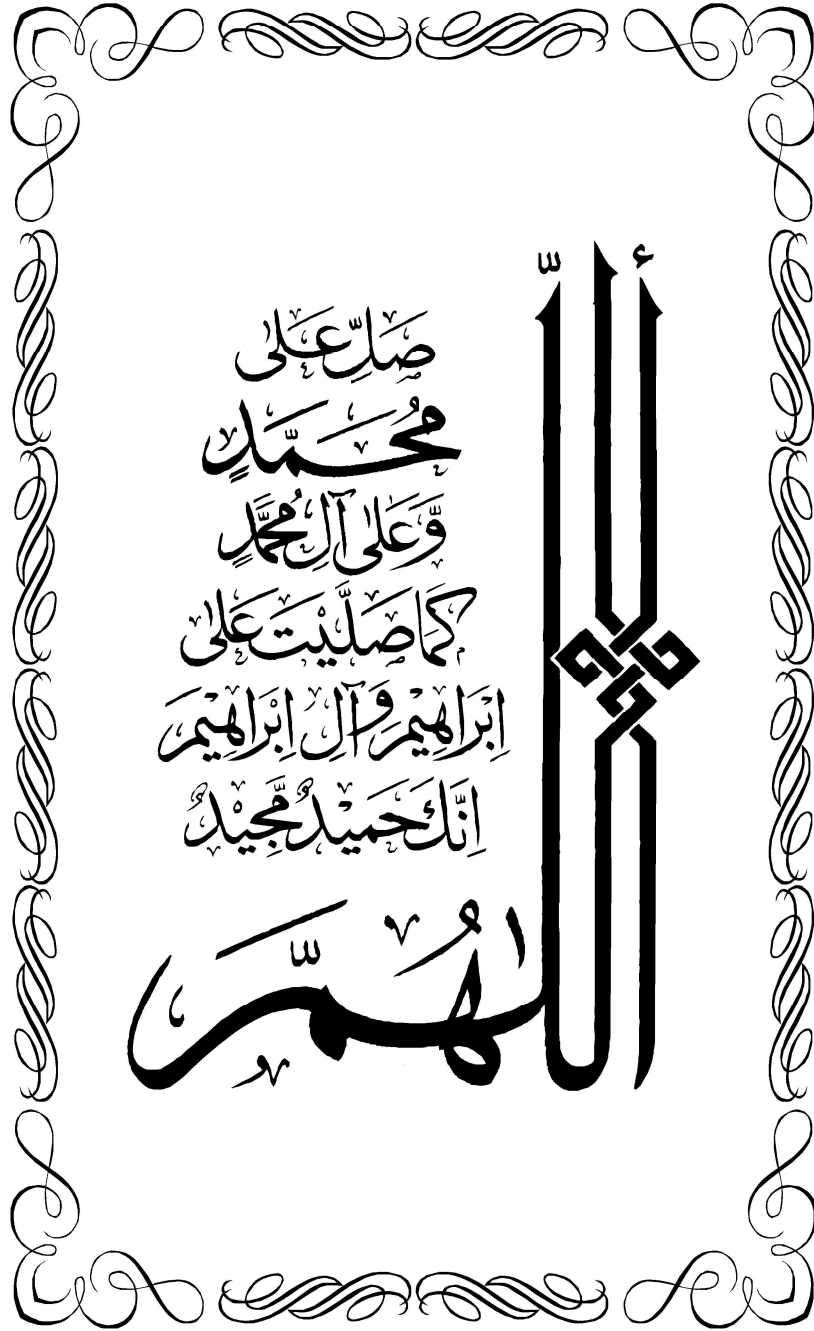 أَللّٰهُمَّ
صَلِّ عَلٰی
مُحَمَّدٍ
وَّعَلٰی آلِ مُحَمَّدٍ
كَمَا صَلَّیْتَ عَلٰی
اِبْرَاهِیْمَ وَآلِ اِبْرَاهِیْمَ
اِنَّكَ حَمِیْدٌ مَّجِیْدٌ